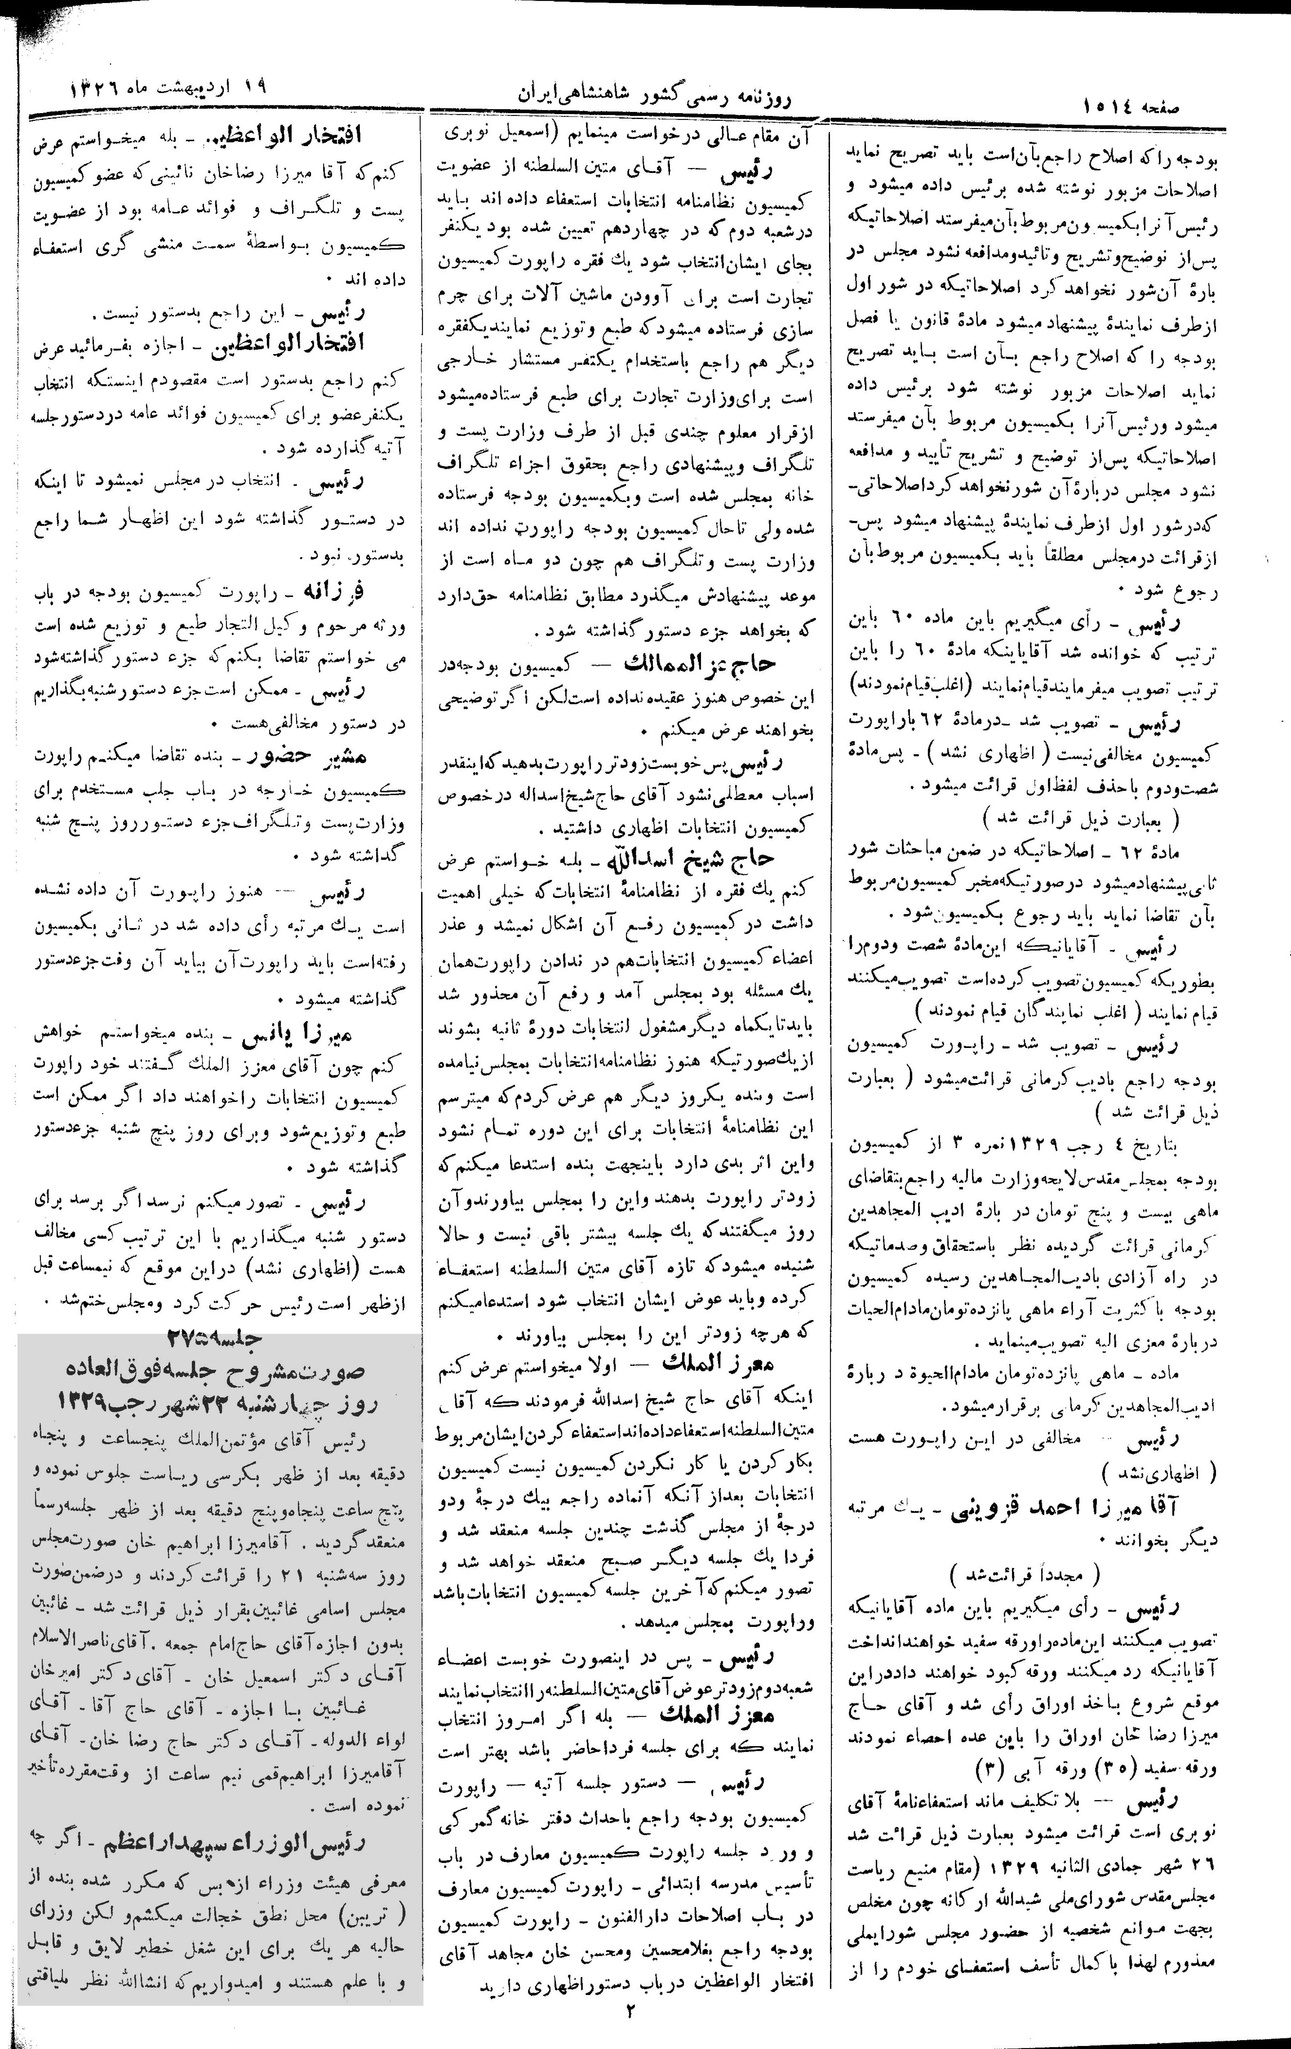 صفحه ۱۵۱۴
روزنامه رسمی کشور شاهنشاهی ایران
۱۹ اردیبهشت ماه ۱۳۲۶
بودجه را که اصلاح راجع بآن است باید تصریح نماید
اصلاحات مزبور نوشته شده برئیس داده میشود و
رئیس آنرا بکمیسیون مربوط بآن میفرستد اصلاحاتیکه
پس از توضیح و تشریح و تائید و مدافعه نشود مجلس در
بارهٔ آن شور نخواهد کرد اصلاحاتیکه در شور اول
از طرف نمایندهٔ پیشنهاد میشود مادهٔ قانون یا فصل
بودجه را که اصلاح راجع بآن است باید تصریح
نماید اصلاحات مزبور نوشته شود برئیس داده
میشود و رئیس آنرا بکمیسیون مربوط بآن میفرستد
اصلاحاتیکه پس از توضیح و تشریح تأیید و مدافعه
نشود مجلس در بارهٔ آن شور نخواهد کرد اصلاحاتی-
که در شور اول از طرف نمایندهٔ پیشنهاد میشود پس-
از قرائت در مجلس مطلقاً باید بکمیسیون مربوط بآن
رجوع شود .
رئیس - رأی میگیریم باین ماده ۶۰ باین
ترتیب که خوانده شد آقایاینکه مادهٔ ۶۰ را باین
ترتیب تصویب میفرمایند قیام نمایند (اغلب قیام نمودند)
رئیس - تصویب شد - در مادهٔ ۶۲ با راپورت
کمیسیون مخالفی نیست ( اظهاری نشد ) - پس مادهٔ
شصت و دوم با حذف لفظ اول قرائت میشود .
( بعبارت ذیل قرائت شد )
مادهٔ ۶۲ - اصلاحاتیکه در ضمن مباحثات شور
ثانی پیشنهاد میشود در صورتیکه مخبر کمیسیون مربوط
بآن تقاضا نماید باید رجوع بکمیسیون شود .
رئیس - آقایانیکه این مادهٔ شصت و دوم را
بطوریکه کمیسیون تصویب کرده است تصویب میکنند
قیام نمایند ( اغلب نمایندگان قیام نمودند )
رئیس - تصویب شد - راپورت کمیسیون
بودجه راجع بادیب کرمانی قرائت میشود ( بعبارت
ذیل قرائت شد )
بتاریخ ۴ رجب ۱۳۲۹ نمره ۳ از کمیسیون
بودجه بمجلس مقدس لایحه وزارت مالیه راجع بتقاضای
ماهی بیست و پنج تومان در بارهٔ ادیب المجاهدین
کرمانی قرائت گردیده نظر باستحقاق و صدماتیکه
در راه آزادی بادیب المجاهدین رسیده کمیسیون
بودجه با کثریت آراء ماهی پانزده تومان مادام الحیات
در بارهٔ معزی الیه تصویب مینماید .
ماده - ماهی پانزده تومان مادام الحیوة در بارهٔ
ادیب المجاهدین کرمانی برقرار میشود .
رئیس - مخالفی در این راپورت هست
( اظهاری نشد )
آقا میرزا احمد قزوینی - یك مرتبه
دیگر بخوانند .
( مجدداً قرائت شد )
رئیس - رأی میگیریم باین ماده آقایانیکه
تصویب میکنند این ماده را ورقه سفید خواهند انداخت
آقایانیکه رد میکنند ورقه کبود خواهند داد در این
موقع شروع باخذ اوراق رأی شد و آقای حاج
میرزا رضا خان اوراق را باین عده احصاء نمودند
ورقه سفید (۳۵) ورقه آبی (۳)
رئیس - بلا تکلیف ماند استعفاءنامهٔ آقای
نوبری است قرائت میشود بعبارت ذیل قرائت شد
۲۶ شهر جمادی الثانیه ۱۳۲۹ (مقام منیع ریاست
مجلس مقدس شورای ملی شیدالله ارکانه چون مخلص
بجهت موانع شخصیه از حضور مجلس شورایملی
معذورم لهذا با کمال تأسف استعفای خودم را از
آن مقام عالی درخواست مینمایم (اسمعیل نوبری
رئیس - آقای متین السلطنه از عضویت
کمیسیون نظامنامه انتخابات استعفاء داده اند باید
در شعبه دوم که در چهاردهم تعیین شده بود یکنفر
بجای ایشان انتخاب شود یك فقره راپورت کمیسیون
تجارت است برای آوودن ماشین آلات برای چرم
سازی فرستاده میشود که طبع و توزیع نمایند یکفقره
دیگر هم راجع باستخدام یکنفر مستشار خارجی
است برای وزارت تجارت برای طبع فرستاده میشود
از قرار معلوم چندی قبل از طرف وزارت پست و
تلگراف و پیشنهادی راجع بحقوق اجزاء تلگراف
خانه بمجلس شده است و بکمیسیون بودجه فرستاده
شده ولی تا حال کمیسیون بودجه راپورت نداده اند
وزارت پست و تلگراف هم چون دو ماه است از
موعد پیشنهادش میگذرد مطابق نظامنامه حق دارد
که بخواهد جزء دستور گذاشته شود .
حاج عز الممالك - کمیسیون بودجه در
این خصوص هنوز عقیده نداده است لکن اگر توضیحی
بخواهند عرض میکنم .
رئیس پس خوبست زودتر راپورت بدهید که اینقدر
اسباب معطلی نشود آقای حاج شیخ اسداله در خصوص
کمیسیون انتخابات اظهاری داشتید .
حاج شیخ اسدالله - بله خواستم عرض
کنم یك فقره از نظامنامهٔ انتخابات که خیلی اهمیت
داشت در کمیسیون رفع آن اشکال نمیشد و عذر
اعضاء کمیسیون انتخابات هم در ندادن راپورت همان
یك مسئله بود بمجلس آمد و رفع آن محذور شد
باید تا یکماه دیگر مشغول انتخابات دورهٔ ثانیه بشوند
از یك صورتیکه هنوز نظامنامه انتخابات بمجلس نیامده
است و بنده یکروز دیگر هم عرض کردم که میترسم
این نظامنامهٔ انتخابات برای این دوره تمام نشود
و این اثر بدی دارد باینجهت بنده استدعا میکنم که
زودتر راپورت بدهند و این را بمجلس بیاورند و آن
روز میگفتند که یك جلسه بیشتر باقی نیست و حالا
شنیده میشود که تازه آقای متین السلطنه استعفاء
کرده و باید عوض ایشان انتخاب شود استدعا میکنم
که هر چه زودتر این را بمجلس بیاورند .
معزز الملك - اولا میخواستم عرض کنم
اینکه آقای حاج شیخ اسدالله فرمودند که آقای
متین السلطنه استعفاء داده اند استعفاء کردن ایشان مربوط
بکار کردن یا کار نکردن کمیسیون نیست کمیسیون
انتخابات بعد از آنکه آنماده راجع بیك درجهٔ و دو
درجهٔ از مجلس گذشت چندین جلسه منعقد شد و
فردا یك جلسه دیگر صبح منعقد خواهد شد و
تصور میکنم که آخرین جلسه کمیسیون انتخابات باشد
و راپورت بمجلس میدهد .
رئیس - پس در اینصورت خوبست اعضاء
شعبه دوم زودتر عوض آقای متین السلطنه را انتخاب نمایند
معزز الملك - بله اگر امروز انتخاب
نمایند که برای جلسه فردا حاضر باشد بهتر است
رئیس - دستور جلسه آتیه - راپورت
کمیسیون بودجه راجع باحداث دفتر خانه گمرکی
و ورود جلسه راپورت کمیسیون معارف در باب
تأسیس مدرسه ابتدائی - راپورت کمیسیون معارف
در باب اصلاحات دارالفنون - راپورت کمیسیون
بودجه راجع بغلامحسین و محسن خان مجاهد آقای
افتخار الواعظین در باب دستور اظهاری دارید
افتخار الواعظین - بله میخواستم عرض
کنم که آقا میرزا رضا خان نائینی که عضو کمیسیون
پست و تلگراف و فوائد عامه بود از عضویت
کمیسیون بواسطهٔ سمت منشی گری استعفاء
داده اند .
رئیس - این راجع بدستور نیست .
افتخار الواعظین - اجازه بفرمائید عرض
کنم راجع بدستور است مقصودم اینستکه انتخاب
یکنفر عضو برای کمیسیون فوائد عامه در دستور جلسه
آتیه گذارده شود .
رئیس - انتخاب در مجلس نمیشود تا اینکه
در دستور گذاشته شود این اظهار شما راجع
بدستور نبود .
فرزانه - راپورت کمیسیون بودجه در باب
ورثه مرحوم وکیل التجار طبع و توزیع شده است
می خواستم تقاضا بکنم که جزء دستور گذاشته شود
رئیس - ممکن است جزء دستور شنبه بگذاریم
در دستور مخالفی هست .
مشیر حضور - بنده تقاضا میکنم راپورت
کمیسیون خارجه در باب جلب مستخدم برای
وزارت پست و تلگراف جزء دستور روز پنج شنبه
گذاشته شود .
رئیس - هنوز راپورت آن داده نشده
است یك مرتبه رأی داده شد در ثانی بکمیسیون
رفته است باید راپورت آن بیاید آن وقت جزء دستور
گذاشته میشود .
میرزا یانس - بنده میخواستم خواهش
کنم چون آقای معزز الملك گفتند خود راپورت
کمیسیون انتخابات را خواهند داد اگر ممکن است
طبع و توزیع شود و برای روز پنج شنبه جزء دستور
گذاشته شود .
رئیس - تصور میکنم نرسد اگر برسد برای
دستور شنبه میگذاریم با این ترتیب کسی مخالف
هست (اظهاری نشد) در این موقع که نیمساعت قبل
از ظهر است رئیس حرکت کرد و مجلس ختم شد .
جلسه ۲۷۵
صورت مشروح جلسه فوق العاده
روز چهارشنبه ۲۲ شهر رجب ۱۳۲۹
رئیس آقای مؤتمن الملك پنجساعت و پنجاه
دقیقه بعد از ظهر بکرسی ریاست جلوس نموده و
پنج ساعت پنجاه و پنج دقیقه بعد از ظهر جلسه رسماً
منعقد گردید . آقا میرزا ابراهیم خان صورت مجلس
روز سه شنبه ۲۱ را قرائت کردند و در ضمن صورت
مجلس اسامی غائبین بقرار ذیل قرائت شد - غائبین
بدون اجازه آقای حاج امام جمعه . آقای ناصر الاسلام
آقای دکتر اسمعیل خان - آقای دکتر امیر خان
غائبین با اجازه - آقای حاج آقا - آقای
لواء الدوله - آقای دکتر حاج رضا خان - آقای
آقا میرزا ابراهیم قمی نیم ساعت از وقت مقرره تأخیر
نموده است .
رئیس الوزراء سپهدار اعظم - اگر چه
معرفی هیئت وزراء از بس که مکرر شده بنده از
( تریبن) محل نطق خجالت میکشم و لکن وزرای
حالیه هر یك برای این شغل خطیر لایق و قابل
و با علم هستند و امیدواریم که انشاالله نظر بلیاقتی
۲